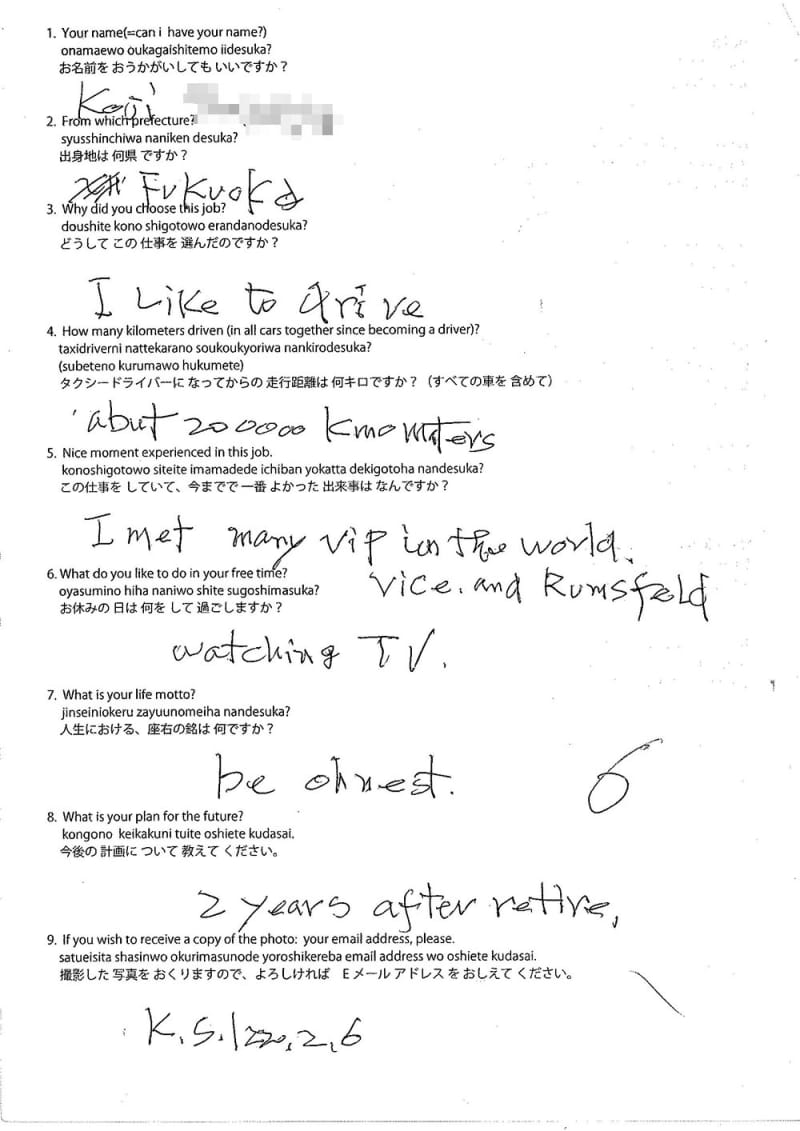 1. Your name(=can i have your name?)
onamaewo oukagaishitemo iidesuka?
お名前を おうかがいしても いいですか？
Koji
2. From which prefecture?
syusshinchiwa naniken desuka?
出身地は 何県 ですか？
Fukuoka
3. Why did you choose this job?
doushite kono shigotowo erandanodesuka?
どうして この 仕事を 選んだのですか？
I Like to drive
4. How many kilometers driven (in all cars together since becoming a driver)?
taxidriverni nattekarano soukoukyoriwa nankirodesuka?
(subeteno kurumawo hukumete)
タクシードライバーに なってからの 走行距離は 何キロですか？（すべての車を 含めて）
abut 200000
5. Nice moment experienced in this job.
konoshigotowo siteite imamadede ichiban yokatta dekigotoha nandesuka?
この仕事を していて、今までで 一番 よかった 出来事は なんですか？
I met many VIP in the world.
Vice. and Rumsfeld
6. What do you like to do in your free time?
oyasumino hiha naniwo shite sugoshimasuka?
お休みの 日は 何を して 過ごしますか？
watching TV.
7. What is your life motto?
jinseiniokeru zayuunomeiha nandesuka?
人生における、座右の銘は 何ですか？
be ohnest.
6
8. What is your plan for the future?
kongono keikakuni tuite oshiete kudasai.
今後の 計画に ついて 教えて ください。
2 years after retire,
9. If you wish to receive a copy of the photo: your email address, please.
satueisita shasinwo okurimasunode yoroshikereba email address wo oshiete kudasai.
撮影した 写真を おくりますので、よろしければ Eメール アドレス を おしえて ください。
K.S.1220.2.6